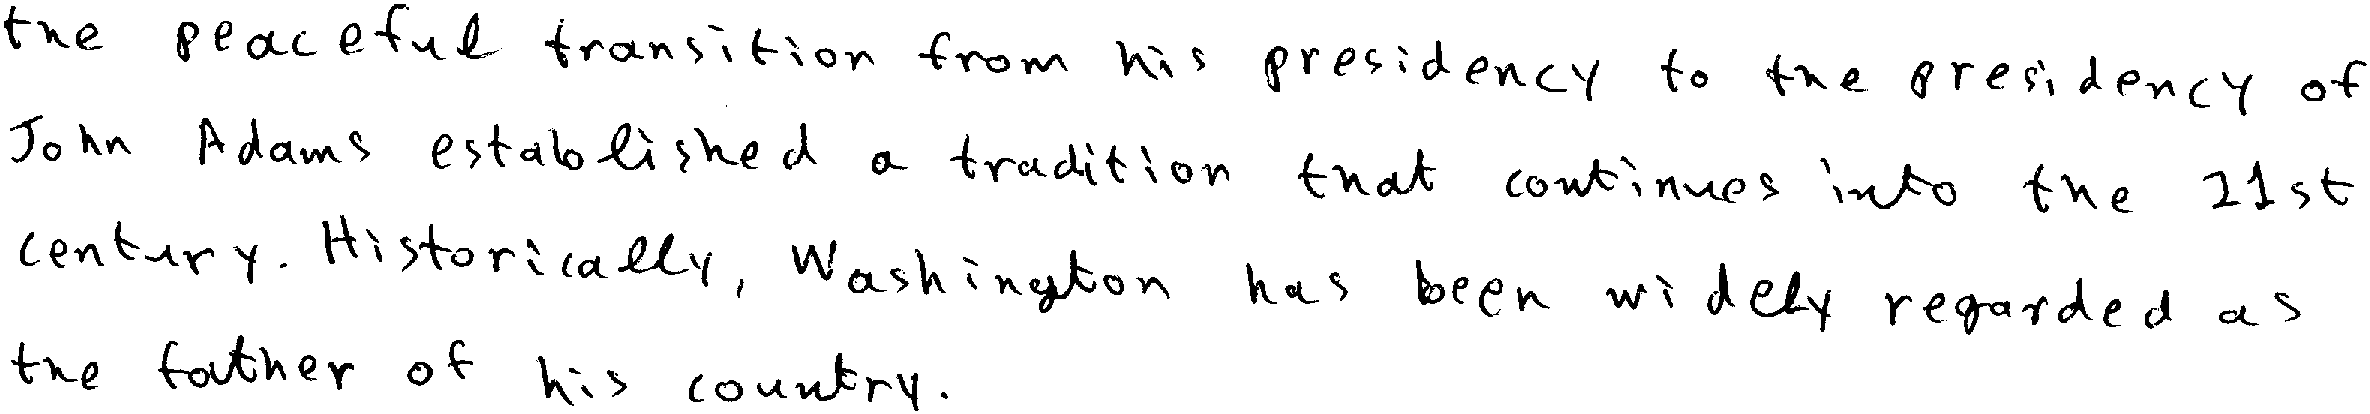 the peaceful transition from his presidency to the presidency of
John Adams established a tradition that continues into the 21st
century. Historically, Washington has been widely regarded as
the father of his country.